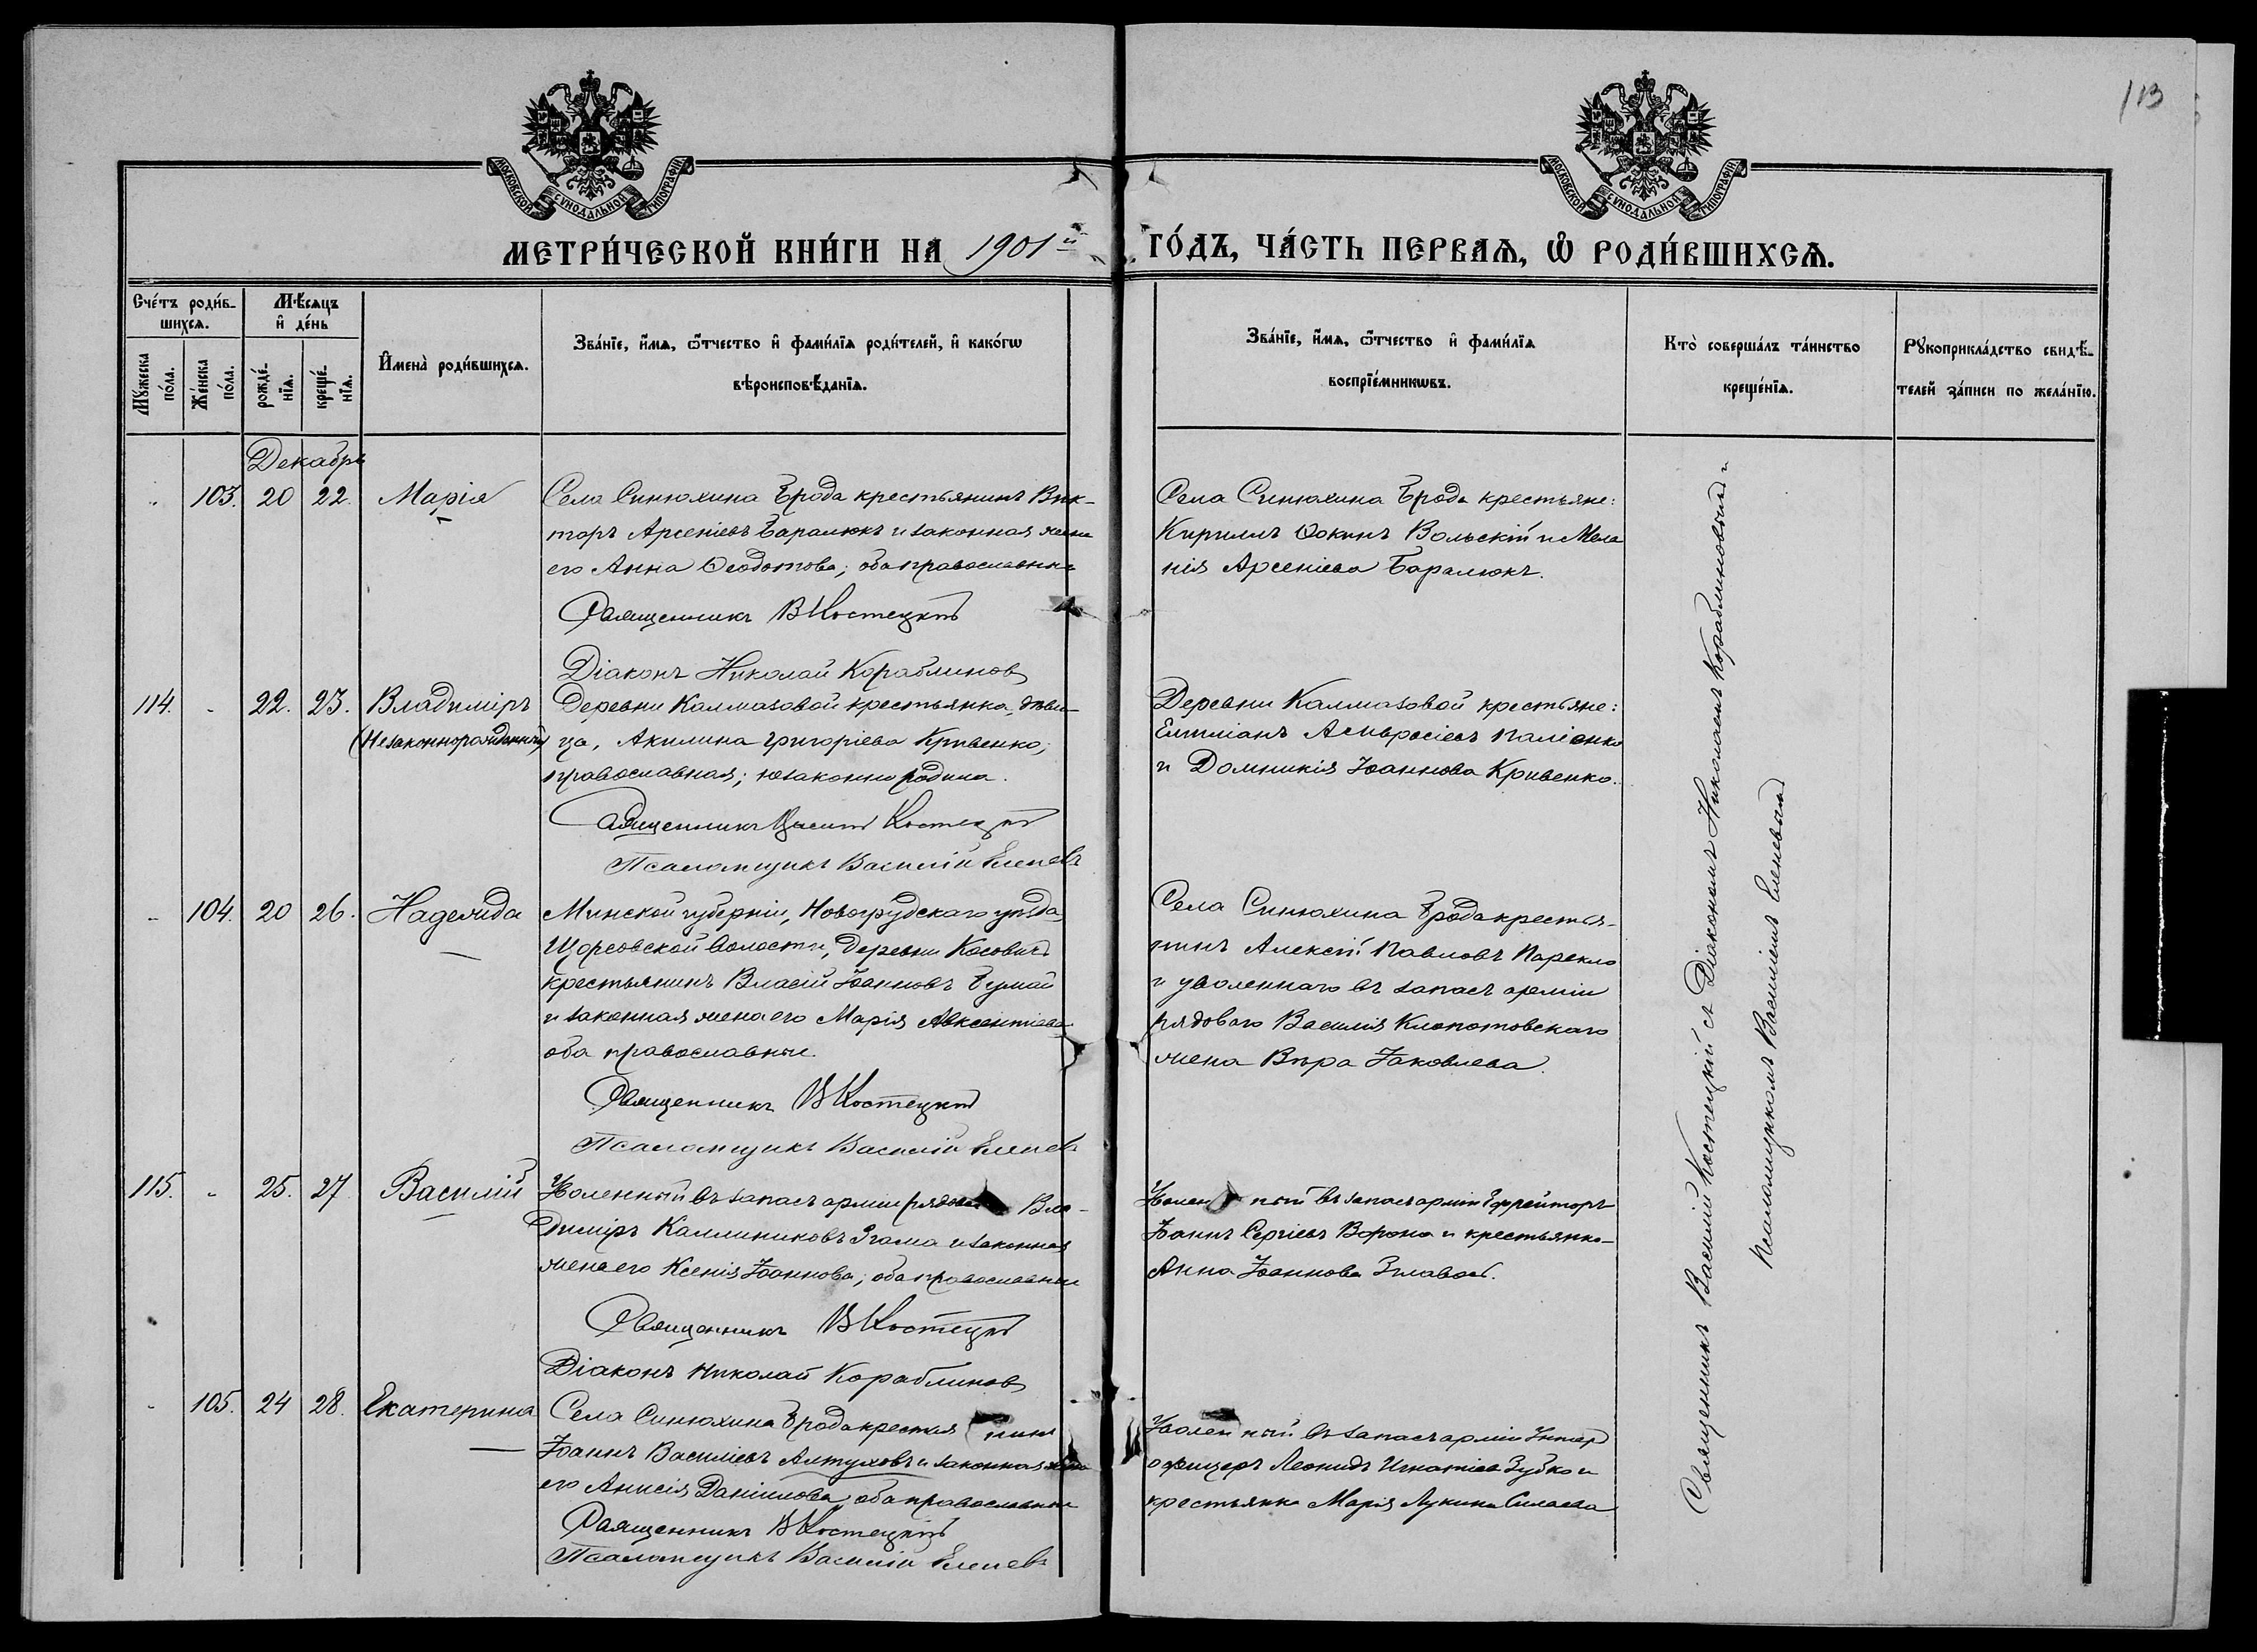 113
МОСКОВСКОЙ СѴНОДАЛЬНОЙ ТИПОГРАФІИ
МОСКОВСКОЙ СѴНОДАЛЬНОЙ ТИПОГРАФІИ
МЕТРИ́ЧЕСКОЙ КНИ́ГИ НА 1901й ГО́ДЪ, ЧА́СТЬ ПЕРВАѦ, Ѡ҆ РОДИ́ВШИХСѦ.
Сче́тъ роди́в-
шихсѧ.
Мꙋ́жеска
по́ла.
Же́нска
по́ла.
Мѣ́сѧцъ
и҆ де́нь
рожде́-
нїѧ.
креще́-
нїѧ.
И҆мена̀ роди́вшихсѧ.
Зва́нїе, и҆́мѧ, ѻ҆́тчество и҆ фами́лїѧ роди́телей, и҆ како́гѡ
вѣроисповѣ́данїѧ.
Зва́нїе, и҆́мѧ, ѻ҆́тчество и҆ фами́лїѧ
воспрїе́мникѡвъ.
Кто̀ соверша́лъ та́инство
креще́нїѧ.
Рꙋкоприкла́дство свидѣ́-
телей за́писи по жела́нїю.
Декабрь
103. 20 22. Марія
Села Синюхина Брода крестьянинъ Вик-
торъ Арсеніевъ Баралюкъ и законная жена
его Анна Ѳеодотова; оба православные
Священникъ В Костецкій
Діаконъ Николай Кораблиновъ
Села Синюхина Брода крестьяне:
Кириллъ Ѳокинъ Вольскій и Мела
нія Арсеніева Баралюкъ.
114. - 22. 23. Владиміръ
(Незаконнорожденный)
Деревни Калмазовой крестьянка, дѣви-
ца, Акилина Григоріева Кривенко,
православная; незаконно родила.
Священникъ Василій Костецкій
Псаломщикъ Василій Еленевъ
Деревни Калмазовой крестьяне:
Емиліанъ Амвросіевъ Паліенко
и Домникія Іоаннова Кривенко.
- 104. 20 26. Надежда
Минской губерніи, Новогрудскаго уѣзда,
Щорсовской волости, деревни Косовичъ
крестьянинъ Власій Іоанновъ
и законная жена его Марія Авксентіева
оба православные.
Священникъ В Костецкій
Псаломщикъ Василій Еленевъ
Села Синюхина Брода крестья-
нинъ Алексій Павловъ
и уволеннаго въ запасъ арміи
рядоваго Василія Клопотовскаго
жена Вѣра Іаковлева.
115. - 25. 27 Василій
Уволенный въ запасъ арміи рядовой Вла-
диміръ Каллиниковъ Згама и законная
жена его Ксенія Іоаннова; оба православные
Священникъ В Костецкій
Діаконъ Николай Кораблиновъ
Уволенный въ запасъ арміи Ефрейторъ
Іоаннъ Сергіевъ Ворона и крестьянка
Анна Іоаннова
- 105. 24 28. Екатерина
Села Синюхина Брода крестьянинъ
Іоаннъ Василіевъ Алтуховъ и законная жена
его Анисія Даніилова, оба православные
Священникъ В Костецкій
Псаломщикъ Василій Еленевъ
Уволенный въ запасъ арміи Унтеръ
офицеръ Леонидъ Игнатіевъ Зубко и
крестьянка Марія Лукина Силаева
Священникъ Василій Костецкій съ Діакономъ Николаемъ Кораблиновымъ и
Псаломщикомъ Василіемъ Еленевымъ